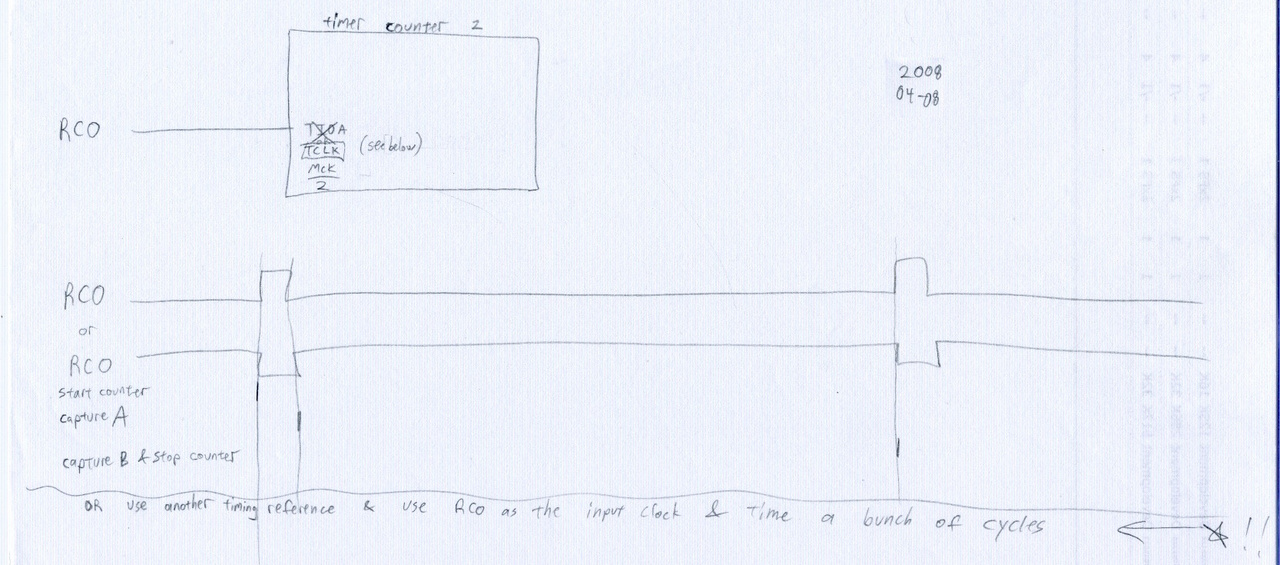 timer counter 2
2008
04-08
RCO
TIOA
TCLK (see below)
MCK
2
RCO
or
RCO
Start counter
capture A
capture B & stop counter
OR use another timing reference & use RCO as the input clock & time a bunch of cycles !!